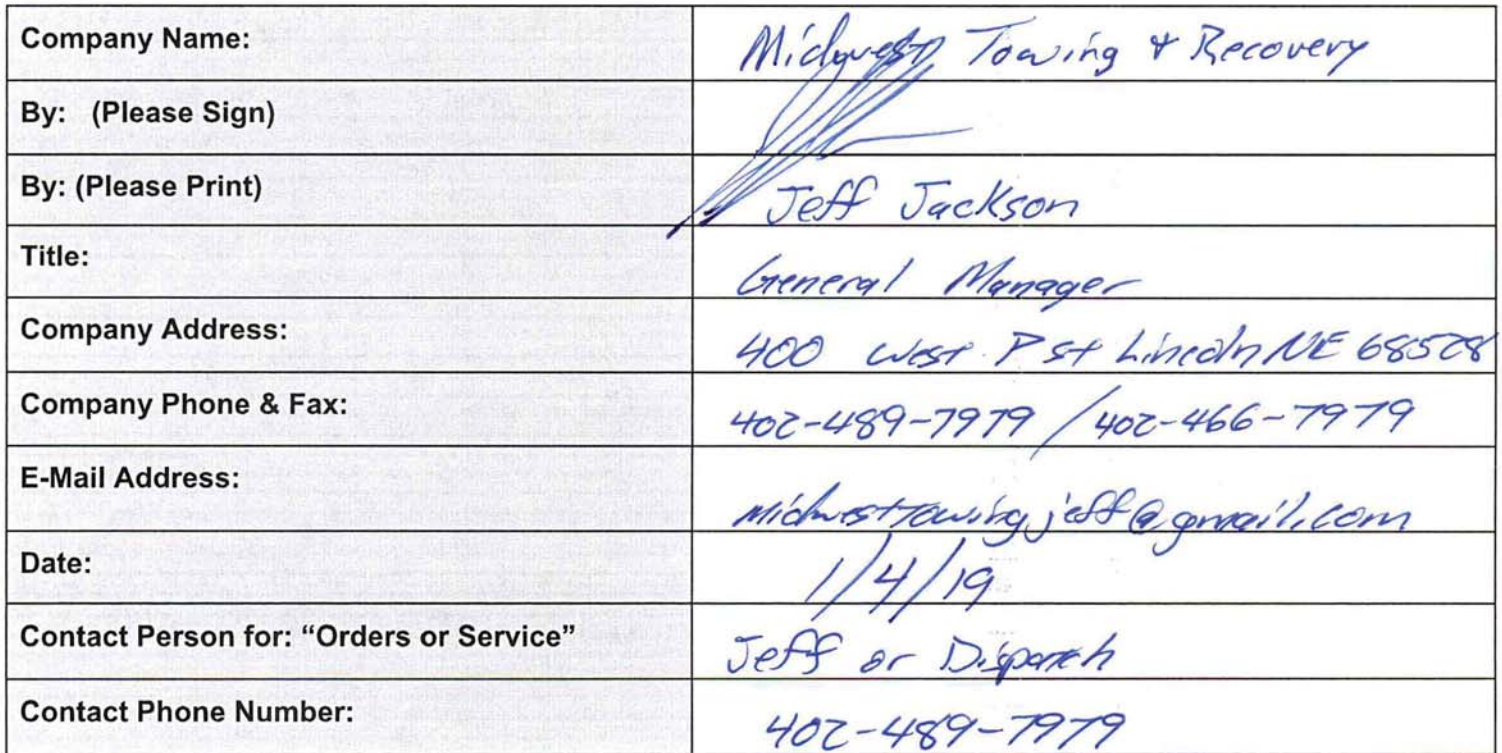 Company Name: Midwest Towing & Recovery
By: (Please Sign)
By: (Please Print) Jeff Jackson
Title: General Manager
Company Address: 400 West P St Lincoln NE 68528
Company Phone & Fax: 402-489-7979 / 402-466-7979
E-Mail Address: midwesttowingjeff@gmail.com
Date: 1/4/19
Contact Person for: "Orders or Service" Jeff or Dispatch
Contact Phone Number: 402-489-7979